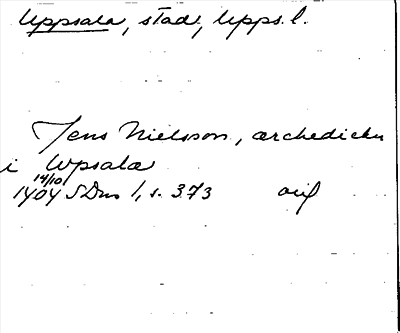 Uppsala, stad, Upps. l.
Jens Nielsson, ærchediekn
i Wpsala
14/10
1404 SDns 1, s. 373 orig